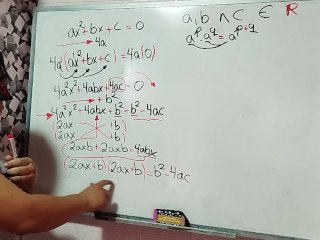 ax²+bx+c=0
4a
4a(ax²+bx+c)=4a(0)
4a²x²+4abx+4ac=0
+b²
4a²x²+4abx+b²=b²-4ac
(2ax +b)
(2ax +b)
2axb+2axb=4abx
(2ax+b)(2ax+b)=b²-4ac
a,b ∧ c ∈ R
aᵖ.a^q=a^(p+q)